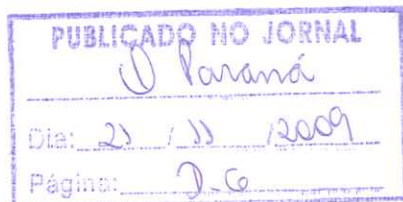 PUBLICADO NO JORNAL
O Paraná
Dia: / 11 / 2009
Página: D-6